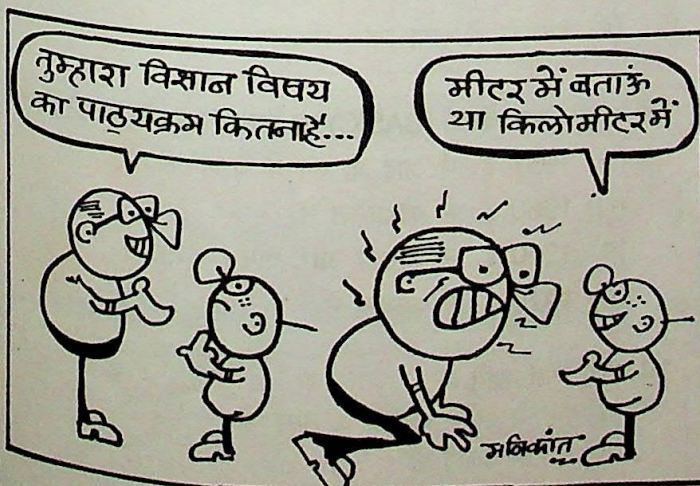 तुम्हारा विज्ञान विषय
का पाठ्यक्रम कितना है...
मीटर में बताऊं
या किलोमीटर में
मनिकांत